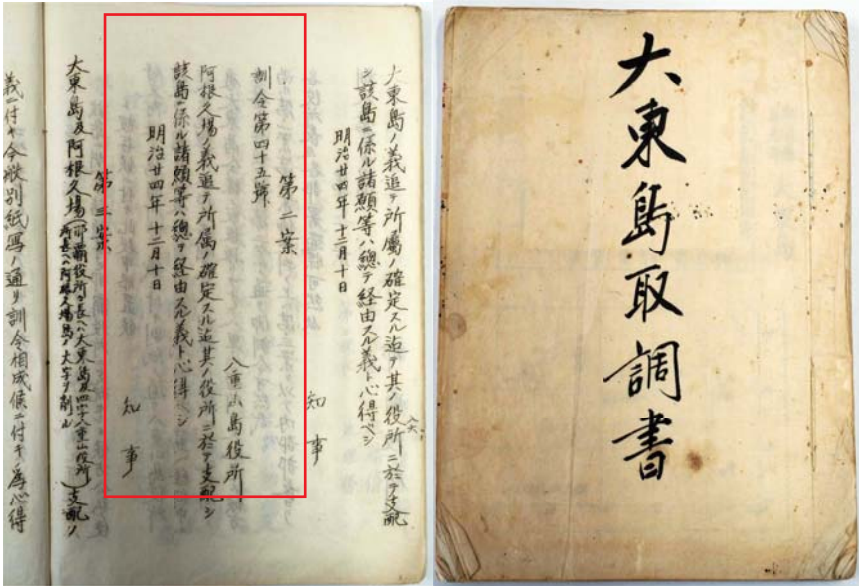 大東島取調書
大東島ノ義追テ所屬ノ確定スル迄テ其ノ役所ニ於テ支配
シ該島ニ係ル諸願等ハ總テ経由スル義ト心得ベシ
明治廿四年十二月十日
知事
第二案
訓令第四十五號
八重山島役所
阿根久場ノ義追テ所属ノ確定スル迄其ノ役所ニ於テ支配シ
該島ニ係ル諸願等ハ總テ経由スル義ト心得ベシ
明治廿四年十二月十日
知事
第三案
大東島及阿根久場(那覇役所長ヘハ大東島及四字八重山役所
所長ヘハ阿根久場島ノ大字ヲ削ル)支配ノ
義ニ付キ今般別紙寫ノ通リ訓令相成候ニ付キ為心得